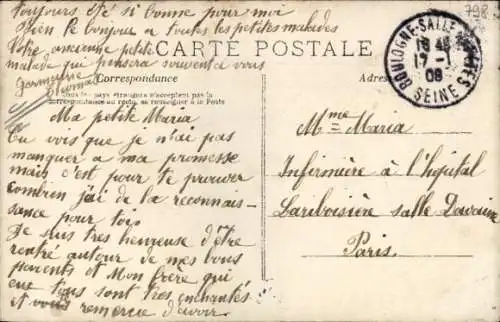 toujours été si bonne pour moi
Bien le bonjour a toutes les petites malades
Votre ancienne petite
malade qui pensera souvent a vous
Germaine
798
CARTE POSTALE
Correspondance
pays étrangers n'acceptent pas la
correspondance au recto, se renseigner à la Poste
Ma petite Maria
Tu vois que je n'ai pas
manquer a ma promesse
mais c'est pour te prouver
combien j'ai de la reconnais-
sance pour toi.
Je suis tres heureuse d'être
rentré autour de mes bons
parents et mon frère qui
eux tous sont tres enchantés
et vous remercie d'avoir
BOULOGNE-SUR-SEINE
17-1
08
SEINE
Adres
Mme Maria
Infirmière à l'hopital
Lariboisière salle Davaine
Paris.